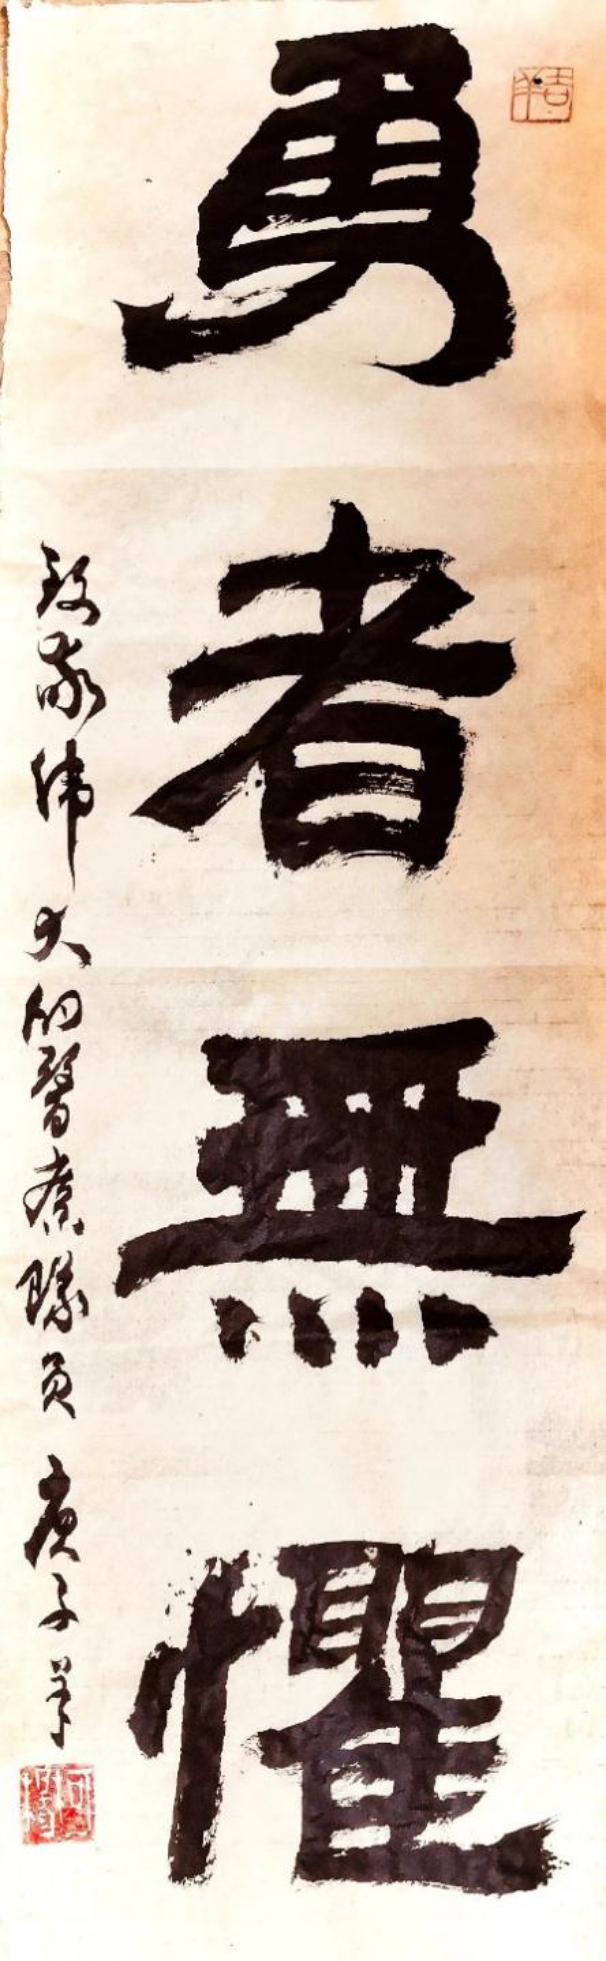 勇者無懼
致敬伟大的醫療隊員 庚子羊